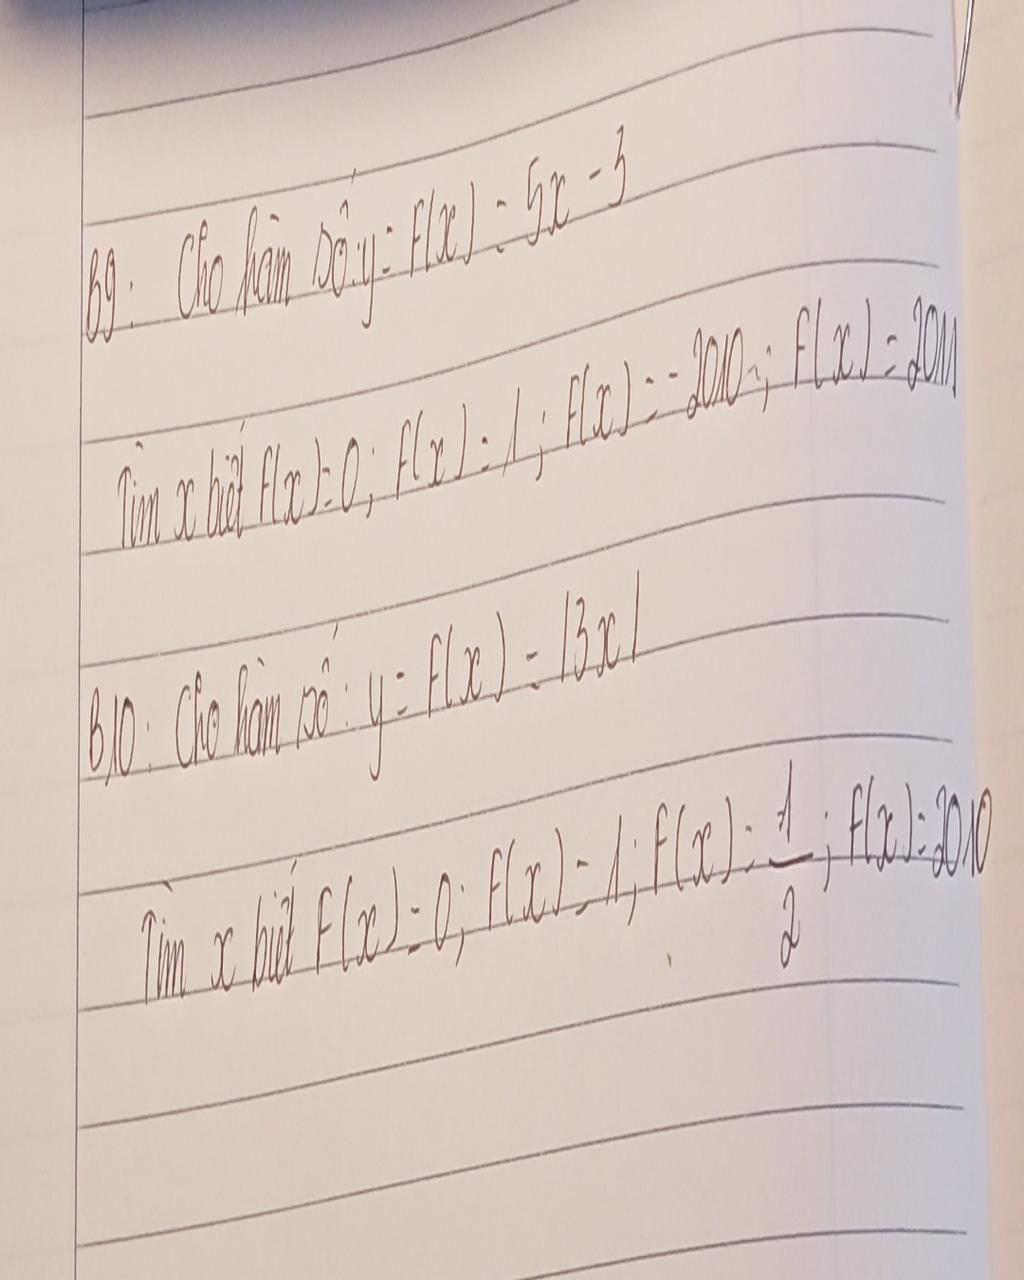 B9: Cho hàm số: y = f(x) = 5x - 3
Tìm x biết f(x) = 0; f(x) = 1; f(x) = -2010; f(x) = 2011
B10: Cho hàm số: y = f(x) = |3x|
Tìm x biết f(x) = 0; f(x) = 1; f(x) = -1/2; f(x) = 2010